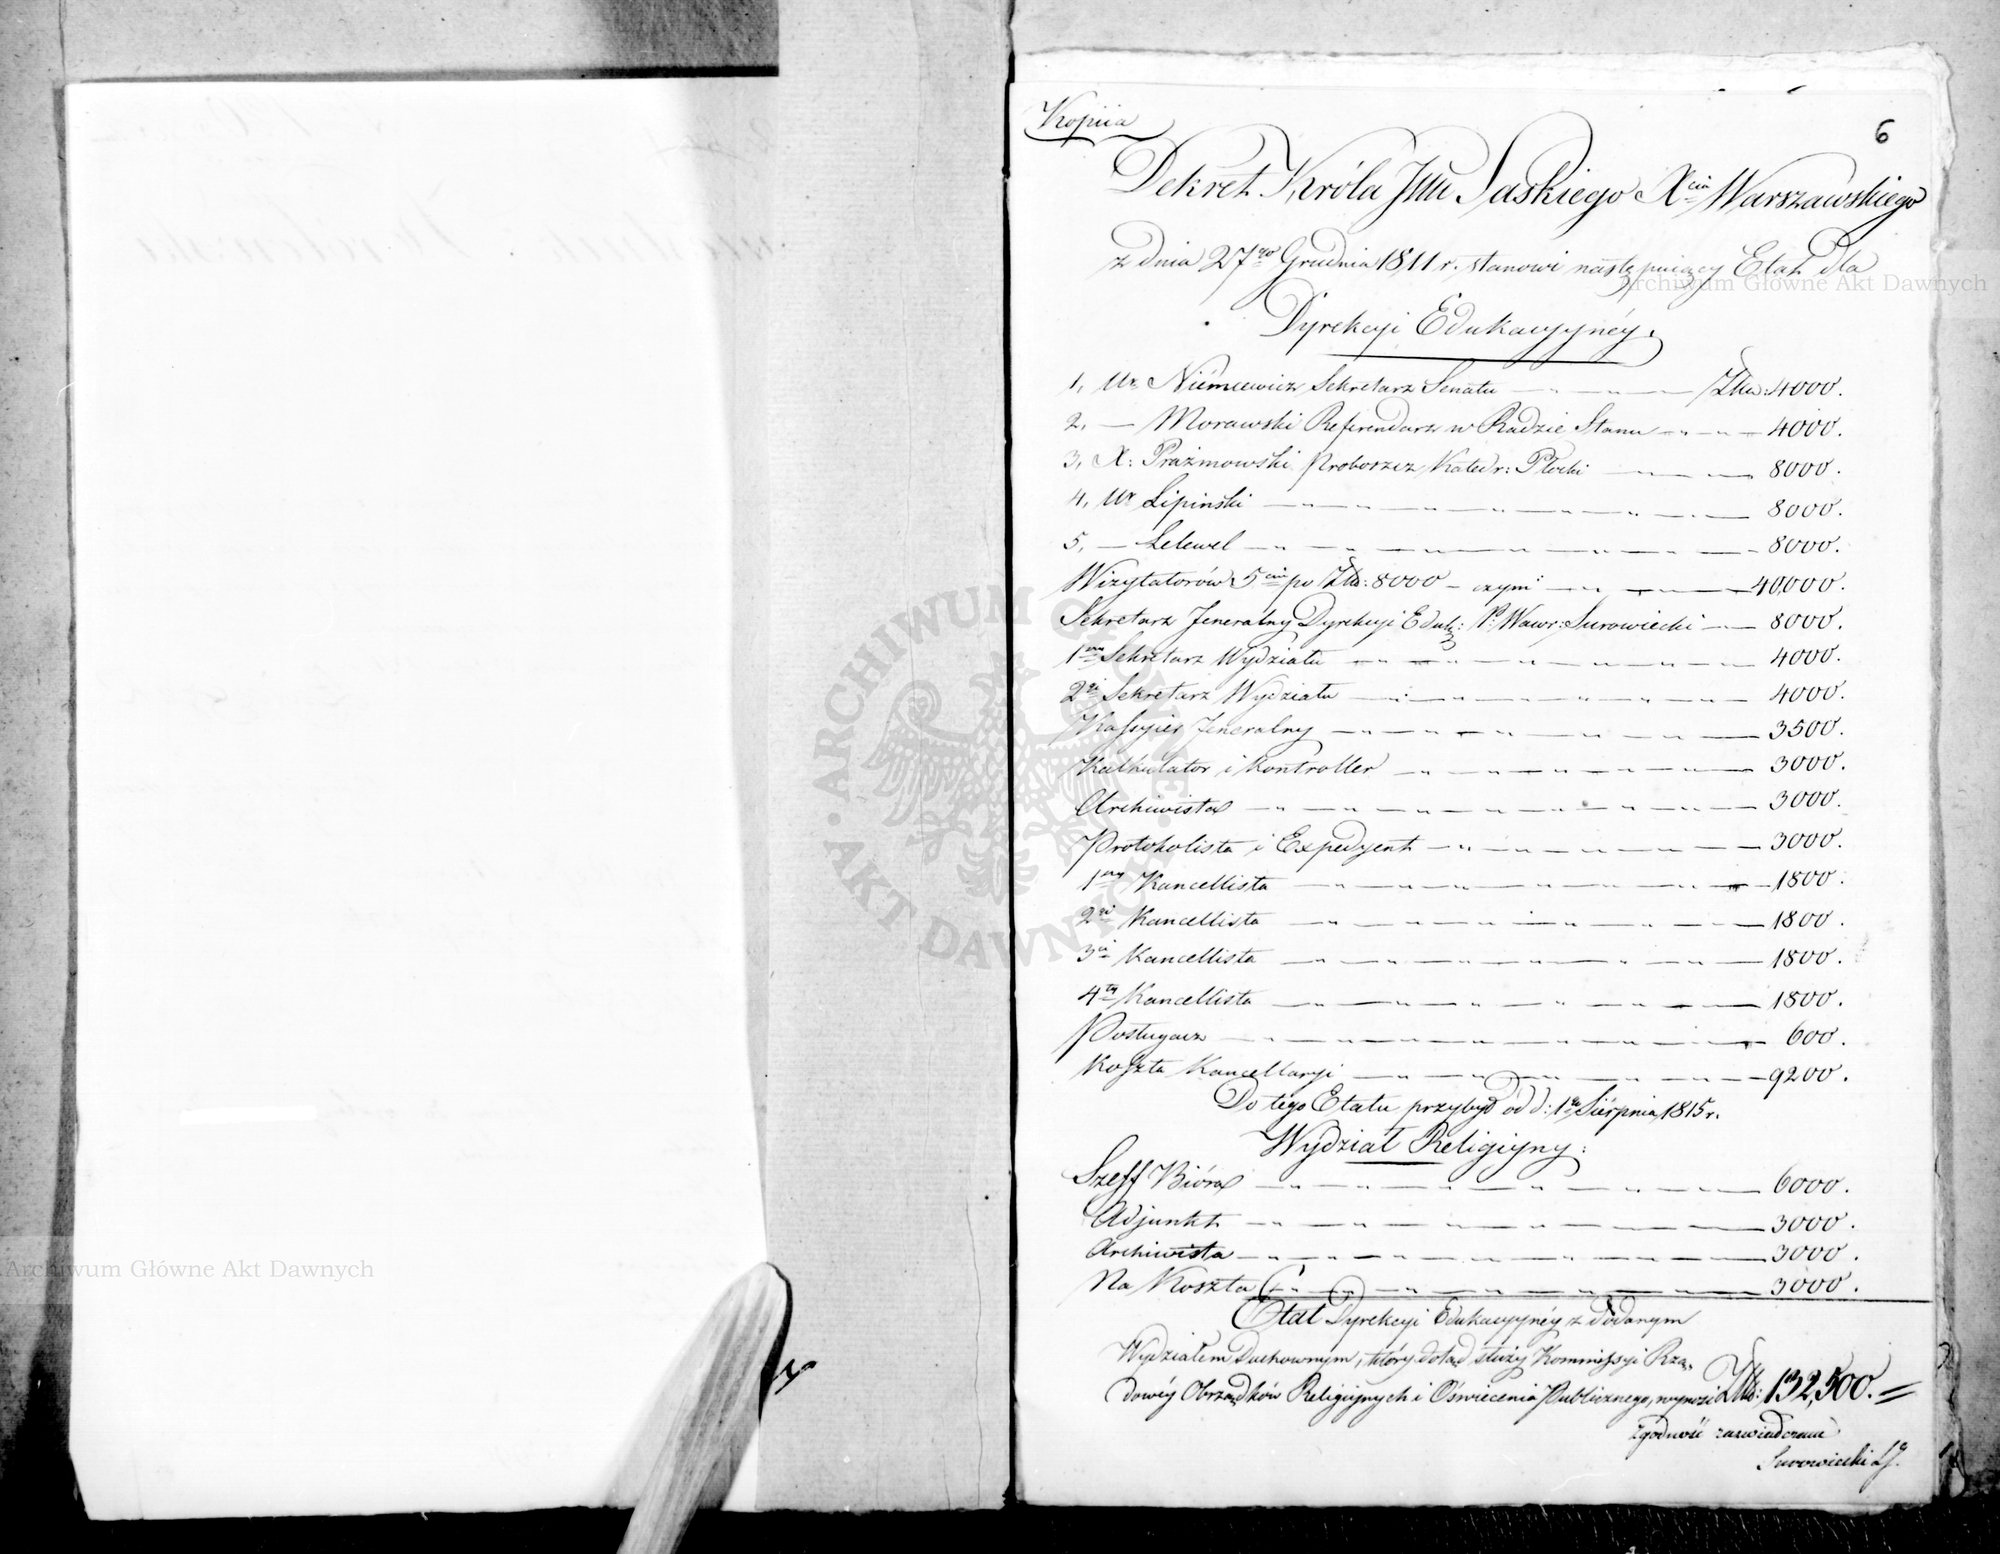 Kopiia
6
Dekret Króla Jmci Saskiego Xcia Warszawskiego
z dnia 27go Grudnia 1811 r. stanowi następuiący Etat dla
Dyrekcyi Edukacyynéy.
1, Ur Niemcewicz Sekretarz Senatu — Złtw: 4000.
2, — Morawski Referendarz w Radzie Stanu — 4000.
3, X: Prażmowski Proboszcz Katedr: Płocki — 8000.
4, Ur Lipiński — 8000.
5, — Lelewel — 8000.
Wizytatorów 5ciu po Złtt: 8000 — czyni — 40,000.
Sekretarz Jeneralny Dyrekcyi Eduk: P: Wawr: Surowiecki — 8000.
1szy Sekretarz Wydziału — 4000.
2gi Sekretarz Wydziału — 4000.
Kassyier Jeneralny — 3500.
Kalkulator i Kontroller — 3000.
Archiwista — 3000.
Protokolista i Expedyent — 3000.
1szy Kancellista — 1800.
2gi Kancellista — 1800.
3ci Kancellista — 1800.
4ty Kancellista — 1800.
Posługacz — 600.
Koszta Kancellaryi — 9200.
Do tego Etatu przybył od d: 1go Sierpnia 1815 r.
Wydział Religiyny:
Szeff Bióra — 6000.
Adjunkt — 3000.
Archiwista — 3000.
Na Koszta — 3000.
Etat Dyrekcyi Edukacyynéy z dodanym
Wydziałem Duchownym, który dotąd służy Kommissyi Rzą-
dowéy Obrządków Religiynych i Oświecenia Publicznego, wynosi Złtt: 132,500. =
Zgodność zaświadczam
Surowiecki SJ.
Archiwum Główne Akt Dawnych
Archiwum Główne Akt Dawnych
· ARCHIWUM GŁÓWNE · AKT DAWNYCH